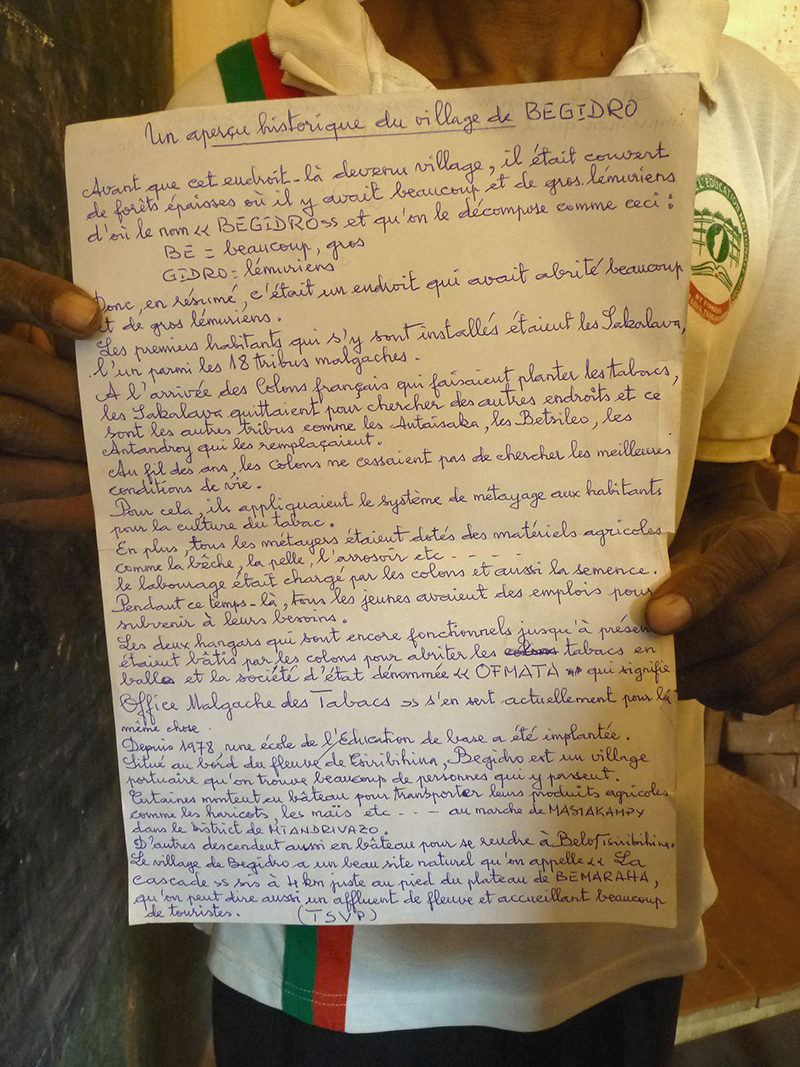 Un aperçu historique du village de BEGIDRO
Avant que cet endroit-là devenu village, il était couvert
de forêts épaisses où il y avait beaucoup et de gros lémuriens
d'où le nom « BEGIDRO » et qu'on le décompose comme ceci :
BE = beaucoup, gros
GIDRO = lémuriens
Donc, en résumé, c'était un endroit qui avait abrité beaucoup
et de gros lémuriens.
Les premiers habitants qui s'y sont installés étaient les Sakalava,
l'un parmi les 18 tribus malgaches.
A l'arrivée des Colons français qui faisaient planter les tabacs,
les Sakalava quittaient pour chercher des autres endroits et ce
sont les autres tribus comme les Antaisaka, les Betsileo, les
Antandroy qui les remplaçaient.
Au fil des ans, les colons ne cessaient pas de chercher les meilleures
conditions de vie.
Pour cela, ils appliquaient le système de métayage aux habitants
pour la culture du tabac.
En plus, tous les métayers étaient dotés des matériels agricoles
comme la bêche, la pelle, l'arrosoir etc - - - -
le labourage était chargé par les colons et aussi la semence.
Pendant ce temps-là, tous les jeunes avaient des emplois pour
subvenir à leurs besoins.
Les deux hangars qui sont encore fonctionnels jusqu'à présent
étaient bâtis par les colons pour abriter les tabacs en
balles et la société d'état dénommée « OFMATA » qui signifie
Office Malgache des Tabacs » s'en sert actuellement pour la
même chose.
Depuis 1978, une école de l'Education de base a été implantée.
Situé au bord du fleuve de Tsiribihina, Begidro est un village
portuaire qu'on trouve beaucoup de personnes qui y passent.
Certaines montent en bâteau pour transporter leurs produits agricoles
comme les haricots, les maïs etc - - - au marche de MASIAKAMPY
dans le District de MIANDRIVAZO.
D'autres descendent aussi en bâteau pour se rendre à Belo/Tsiribihina.
Le village de Begidro a un beau site naturel qu'on appelle « La
cascade » sis à 4km juste au pied du plateau de BEMARAHA,
qu'on peut dire aussi un affluent de fleuve et accueillant beaucoup
de touristes. (TSVP)
L'ÉDUCATION